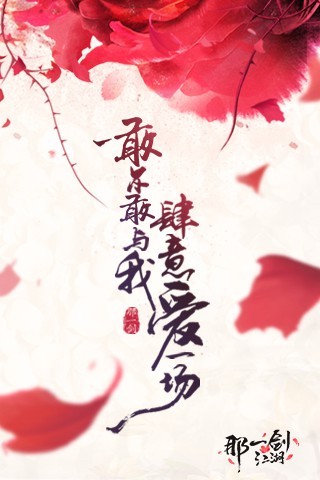 敢不敢与我
肆意爱一场
那一剑
那一剑
江湖